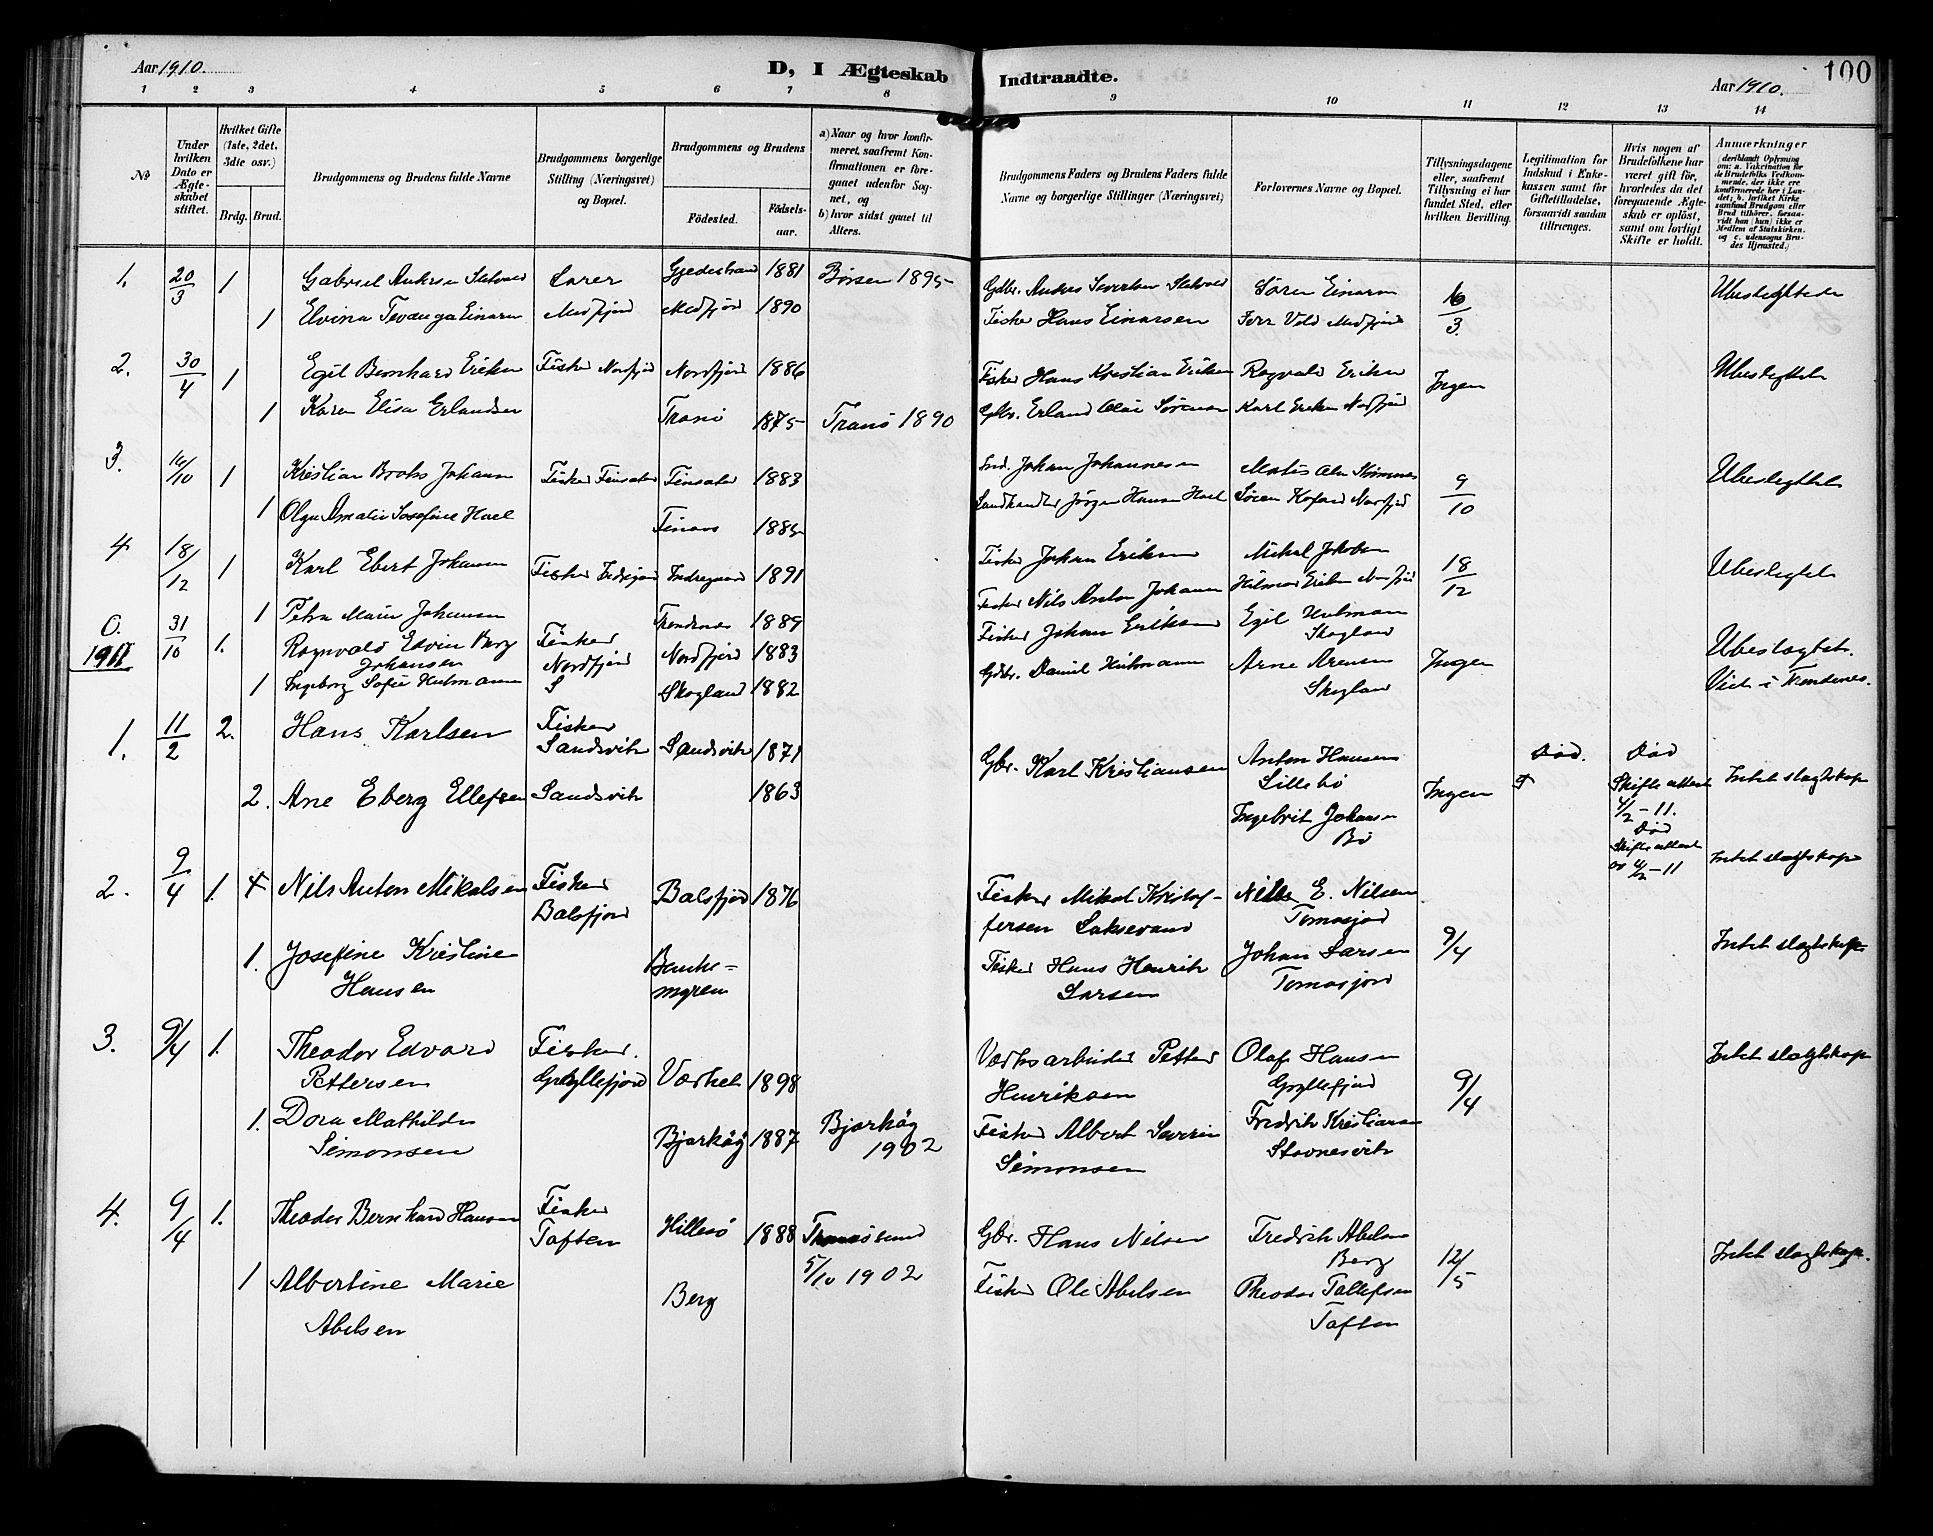 Aar 1910.
D, I Ægteskab
Indtraadte.
Aar 1910.
100
1 2 3 4 5 6 7 8 9 10 11 12 13 14
No
Under hvilken Dato er Ægteskabet stiftet.
Hvilket Gifte (1ste, 2det, 3die osv.)
Brdg. Brud.
Brudgommens og Brudens fulde Navne
Brudgommens borgerlige Stilling (Næringsvei) og Bopæl.
Brudgommens og Brudens
Fødested.
Fødselsaar.
a) Naar og hvor konfirmeret, saafremt Konfirmationen er foregaaet udenfor Sognet, og
b) hvor sidst gaaet til Alters.
Brudgommens Faders og Brudens Faders fulde Navne og borgerlige Stillinger (Næringsvei)
Forlovernes Navne og Bopæl.
Tillysningsdagene eller, saafremt Tillysning ei har fundet Sted, efter hvilken Bevilling.
Legitimation for Indskud i Enkekassen samt for Giftetilladelse, forsaavidt saadan tiltrænges.
Hvis nogen af Brudefolkene har været gift før, hvorledes da det foregaaende Ægteskab er opløst, samt om lovligt Skifte er holdt.
Anmærkninger
(deriblandt Oplysning om: a. Vakcination for de Brudefolks Vedkommende, der ikke ere konfirmerede her i Landet; b. hvilket Kirkesamfund Brudgom eller Brud tilhører, forsaavidt han (hun) ikke er Medlem af Statskirken, og c. udensogns Brudes Hjemsted.)
1. 20/3 1 Gabriel Andersen 1881 Børsen 1895 Gdbr. Anders 16/3 Ubeslægtede
1 Elvina Medfjord Medfjord 1890 Fisker Hans Einarsen
2. 30/4 1 Egil Bernhard Eriksen Fisker Nordfjord Nordfjord 1886 Fisker Hans Kristian Eriksen Ragvald Eriksen Ingen Ubeslægtet
1 Karen Elisa Erlandsen Tranø 1875 Tranø 1890 Gdbr. Erland Olai Sørensen Karl Eriksen Nordfjord
3. 16/10 1 Kristian Johansen Fisker 1883 Johan Johannesen 9/10 Ubeslægtet
1 Olga Amalie Josefine 1885 Landhandler Jørgen Hansen Søren Nordfjord
4 18/12 1 Karl Ebert Johansen Fisker 1891 Fisker Johan Eriksen Mikal Jakobsen 18/12 Ubeslægtet
1 Petra Marie Johansen Trondenæs 1889 Fisker Nils Anton Johansen Hilmar Eriksen Nordfjord
0. 31/10 1. Ragnvald Edvin Berg Johansen Fisker Nordfjord Nordfjord 1883 Fisker Johan Eriksen Egil Hutmann Skogland Ubeslægtet.
1911
1 Ingeborg Sofie Hutmann S Skogland 1882 Gdbr. Daniel Hutmann Arne Arnesen Skogland Ingen Viet i Trondenes.
1. 11/2 2. Hans Karlsen Fisker Sandsvik Sandsvik 1871 Gbr. Karl Kristiansen Anton Hansen Lillebø Død. Død Skifteattest 4/2-11. Intet slægtskap
2. Ane Eberg Ellefsen Sandsvik 1863 Ingebrit Johansen Bø Ingen Død Skifteattest 4/2-11 Intet slægtskap
2. 9/4 1. Nils Anton Mikalsen Fisker Balsfjord Balsfjord 1876 Fisker Mikal Kristoffersen Laksevand Nils E. Nilsen Tomasjord 9/4
1. Josefine Kristine Hansen Fisker Hans Henrik Larsen Johan Larsen Tomasjord Intet slægtskap
3. 9/4 1. Theodor Edvard Pettersen Fisker. Gryllefjord Værket 1898 Værksarbeider Petter Henriksen Olaf Hansen Gryllefjord 9/4 Intet slægtskap
1. Dora Mathilde Simonsen Bjarkøy 1887 Bjarkøy 1902 Fisker Albert Severin Simonsen Fredrik Kristiansen Stavnesvik
4. 9/4 1. Theodor Bernhard Hansen Fisker Taften Hillesø 1888 Tromsøsund 5/10 1902 Gbr. Hans Nilsen Fredrik Abelsen Berg 12/5 Intet slægtskap.
1 Albertine Marie Abelsen Berg Fisker Ole Abelsen Theodor Tollefsen Taften